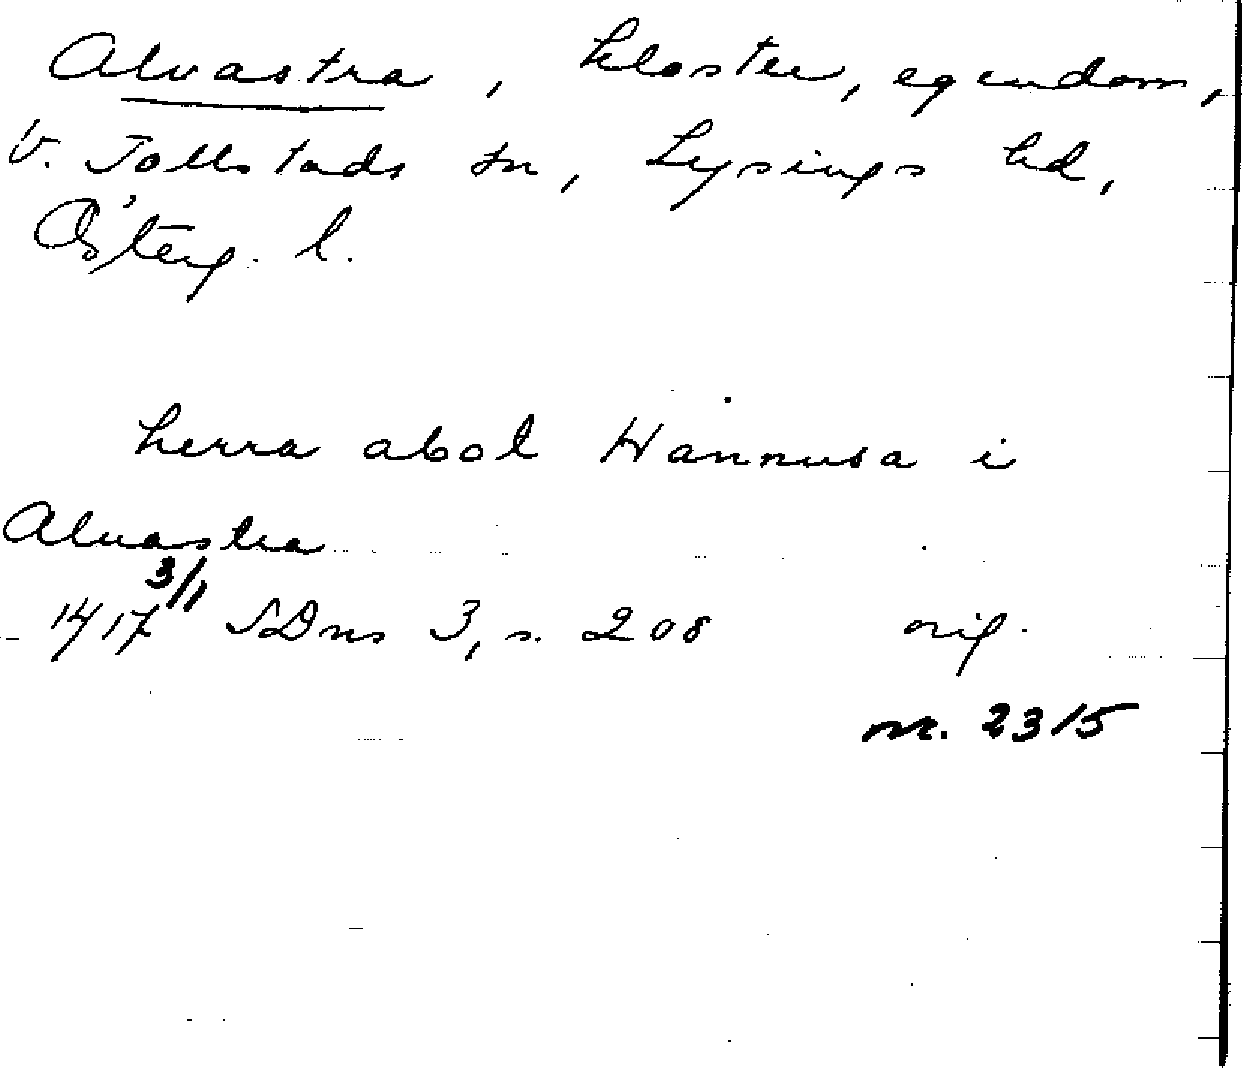 Alvastra, kloster, egendom,
V. Tollstads sn, Lysings hd,
Österg. l.
herra abot Hannusa i
Alvastra
1417 3/1 SDns 3, s. 208 orig.
nr. 2315